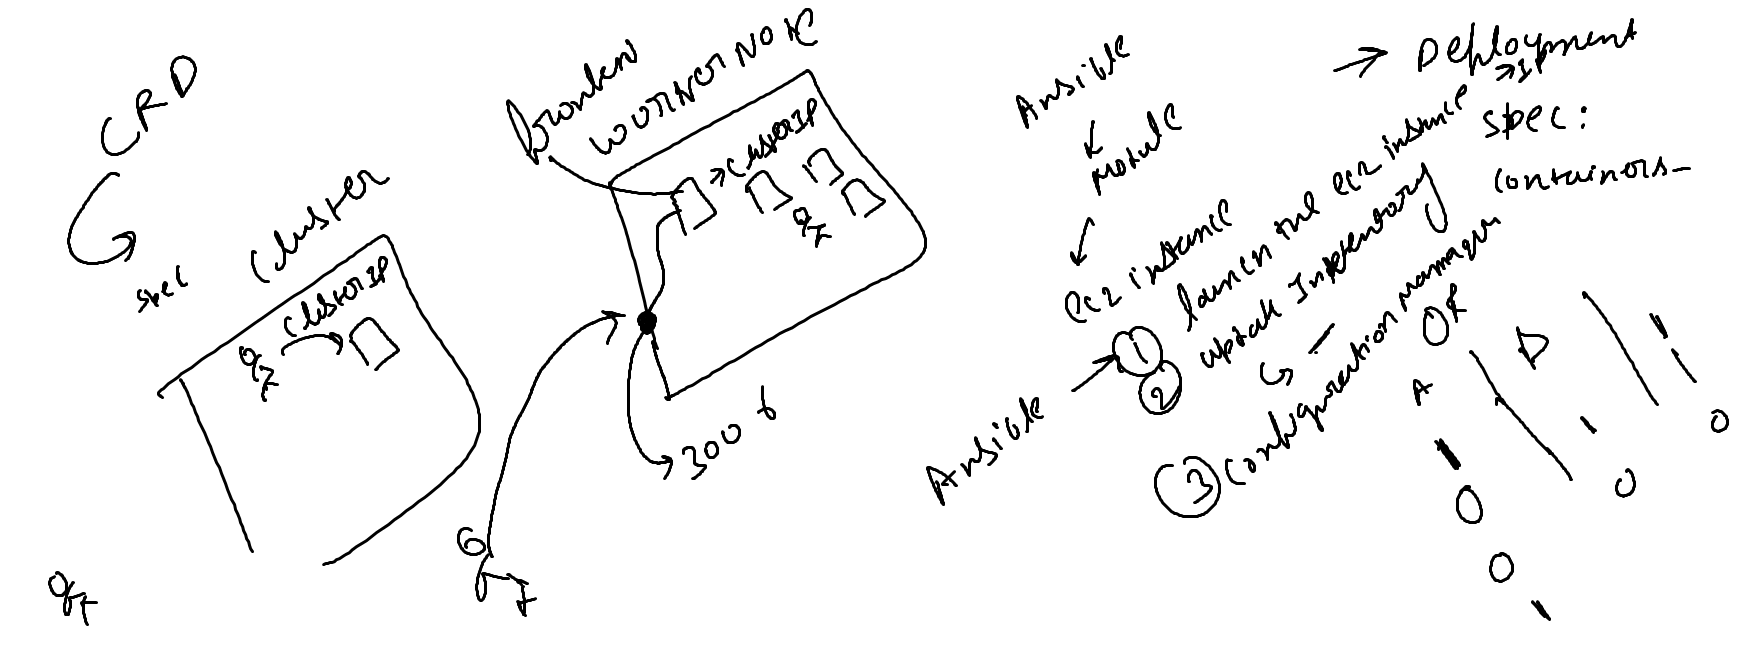 CRD
spec
Cluster
ClusterIP
Workernode
ClusterIP
3006
Ansible
Module
ec2 instance
Ansible
1 launch the ec2 instance → IP
2 update Inventory
3 Configuration manager
→ Deployment
spec:
containers-
OR
A
D
1
0
0
1
0
1
0